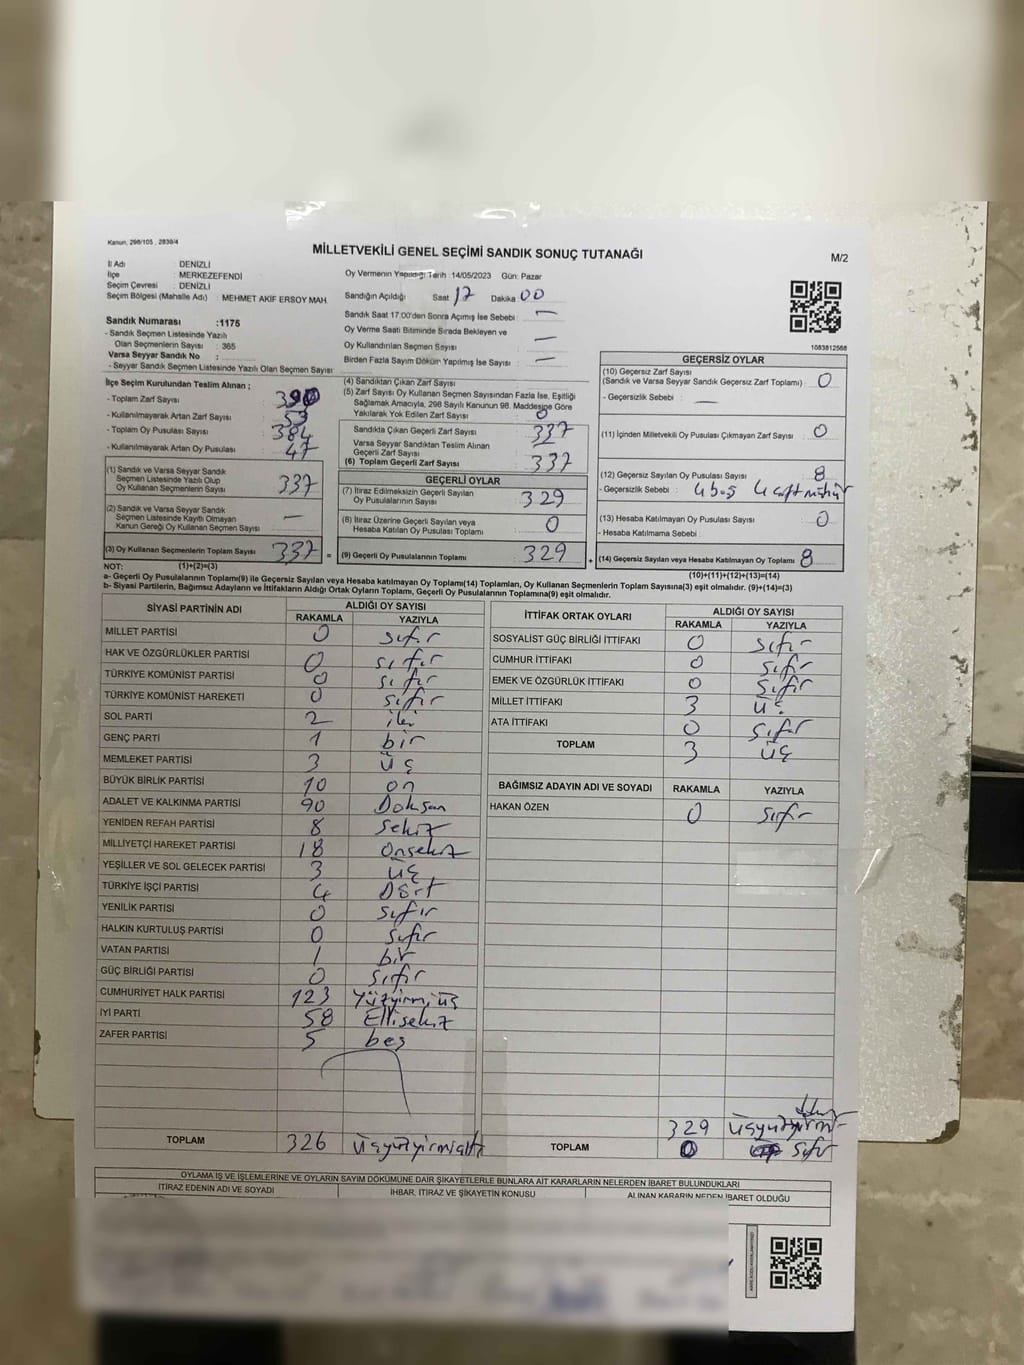 Kanun, 298/105 , 2839/4
MİLLETVEKİLİ GENEL SEÇİMİ SANDIK SONUÇ TUTANAĞI
M/2
İl Adı : DENİZLİ
İlçe : MERKEZEFENDİ
Seçim Çevresi : DENİZLİ
Seçim Bölgesi (Mahalle Adı) : MEHMET AKİF ERSOY MAH.
Sandık Numarası :1175
- Sandık Seçmen Listesinde Yazılı
Olan Seçmenlerin Sayısı : 365
Varsa Seyyar Sandık No :
- Seyyar Sandık Seçmen Listesinde Yazılı Olan Seçmen Sayısı
Oy Vermenin Yapıldığı Tarih :14/05/2023 Gün: Pazar
Sandığın Açıldığı Saat 17 Dakika 00
Sandık Saat 17.00'den Sonra Açılmış İse Sebebi : —
Oy Verme Saati Bitiminde Sırada Bekleyen ve
Oy Kullandırılan Seçmen Sayısı : —
Birden Fazla Sayım Döküm Yapılmış İse Sayısı : —
1083812568
İlçe Seçim Kurulundan Teslim Alınan ;
- Toplam Zarf Sayısı : 390
- Kullanılmayarak Artan Zarf Sayısı : 53
- Toplam Oy Pusulası Sayısı : 384
- Kullanılmayarak Artan Oy Pusulası : 47
(1) Sandık ve Varsa Seyyar Sandık
Seçmen Listesinde Yazılı Olup
Oy Kullanan Seçmenlerin Sayısı 337
(2) Sandık ve Varsa Seyyar Sandık
Seçmen Listesinde Kayıtlı Olmayan
Kanun Gereği Oy Kullanan Seçmen Sayısı : —
(3) Oy Kullanan Seçmenlerin Toplam Sayısı : 337 =
(1)+(2)=(3)
(4) Sandıktan Çıkan Zarf Sayısı
(5) Zarf Sayısı Oy Kullanan Seçmen Sayısından Fazla İse, Eşitliği
Sağlamak Amacıyla, 298 Sayılı Kanunun 98. Maddesine Göre
Yakılarak Yok Edilen Zarf Sayısı : 0
Sandıkta Çıkan Geçerli Zarf Sayısı : 337
Varsa Seyyar Sandıktan Teslim Alınan
Geçerli Zarf Sayısı : —
(6) Toplam Geçerli Zarf Sayısı : 337
GEÇERLİ OYLAR
(7) İtiraz Edilmeksizin Geçerli Sayılan
Oy Pusulalarının Sayısı : 329
(8) İtiraz Üzerine Geçerli Sayılan veya
Hesaba Katılan Oy Pusulası Toplamı : 0
(9) Geçerli Oy Pusulalarının Toplamı : 329 +
GEÇERSİZ OYLAR
(10) Geçersiz Zarf Sayısı
(Sandık ve Varsa Seyyar Sandık Geçersiz Zarf Toplamı) : 0
- Geçersizlik Sebebi : —
(11) İçinden Milletvekili Oy Pusulası Çıkmayan Zarf Sayısı : 0
(12) Geçersiz Sayılan Oy Pusulası Sayısı : 8
- Geçersizlik Sebebi : 4 boş 4 çift mühür
(13) Hesaba Katılmayan Oy Pusulası Sayısı : 0
- Hesaba Katılmama Sebebi :
(14) Geçersiz Sayılan veya Hesaba Katılmayan Oy Toplamı : 8
(10)+(11)+(12)+(13)=(14)
NOT:
a- Geçerli Oy Pusulalarının Toplamı(9) ile Geçersiz Sayılan veya Hesaba katılmayan Oy Toplamı(14) Toplamları, Oy Kullanan Seçmenlerin Toplam Sayısına(3) eşit olmalıdır. (9)+(14)=(3)
b- Siyasi Partilerin, Bağımsız Adayların ve İttifakların Aldığı Ortak Oyların Toplamı, Geçerli Oy Pusulalarının Toplamına(9) eşit olmalıdır.
SİYASİ PARTİNİN ADI ALDIĞI OY SAYISI
RAKAMLA YAZIYLA
MİLLET PARTİSİ 0 sıfır
HAK VE ÖZGÜRLÜKLER PARTİSİ 0 sıfır
TÜRKİYE KOMÜNİST PARTİSİ 0 sıfır
TÜRKİYE KOMÜNİST HAREKETİ 0 sıfır
SOL PARTİ 2 iki
GENÇ PARTİ 1 bir
MEMLEKET PARTİSİ 3 üç
BÜYÜK BİRLİK PARTİSİ 10 on
ADALET VE KALKINMA PARTİSİ 90 Doksan
YENİDEN REFAH PARTİSİ 8 sekiz
MİLLİYETÇİ HAREKET PARTİSİ 18 onsekiz
YEŞİLLER VE SOL GELECEK PARTİSİ 3 üç
TÜRKİYE İŞÇİ PARTİSİ 4 Dört
YENİLİK PARTİSİ 0 sıfır
HALKIN KURTULUŞ PARTİSİ 0 sıfır
VATAN PARTİSİ 1 bir
GÜÇ BİRLİĞİ PARTİSİ 0 sıfır
CUMHURİYET HALK PARTİSİ 123 Yüzyirmiüç
İYİ PARTİ 58 Ellisekiz
ZAFER PARTİSİ 5 beş
TOPLAM 326 üçyüzyirmialtı
İTTİFAK ORTAK OYLARI ALDIĞI OY SAYISI
RAKAMLA YAZIYLA
SOSYALİST GÜÇ BİRLİĞİ İTTİFAKI 0 sıfır
CUMHUR İTTİFAKI 0 sıfır
EMEK VE ÖZGÜRLÜK İTTİFAKI 0 sıfır
MİLLET İTTİFAKI 3 üç
ATA İTTİFAKI 0 sıfır
TOPLAM 3 üç
BAĞIMSIZ ADAYIN ADI VE SOYADI RAKAMLA YAZIYLA
HAKAN ÖZEN 0 sıfır
329 üçyüzyirmi-
TOPLAM 0 sıfır
OYLAMA İŞ VE İŞLEMLERİNE VE OYLARIN SAYIM DÖKÜMÜNE DAİR ŞİKAYETLERLE BUNLARA AİT KARARLARIN NELERDEN İBARET BULUNDUKLARI
İTİRAZ EDENİN ADI VE SOYADI İHBAR, İTİRAZ VE ŞİKAYETİN KONUSU ALINAN KARARIN NEDEN İBARET OLDUĞU